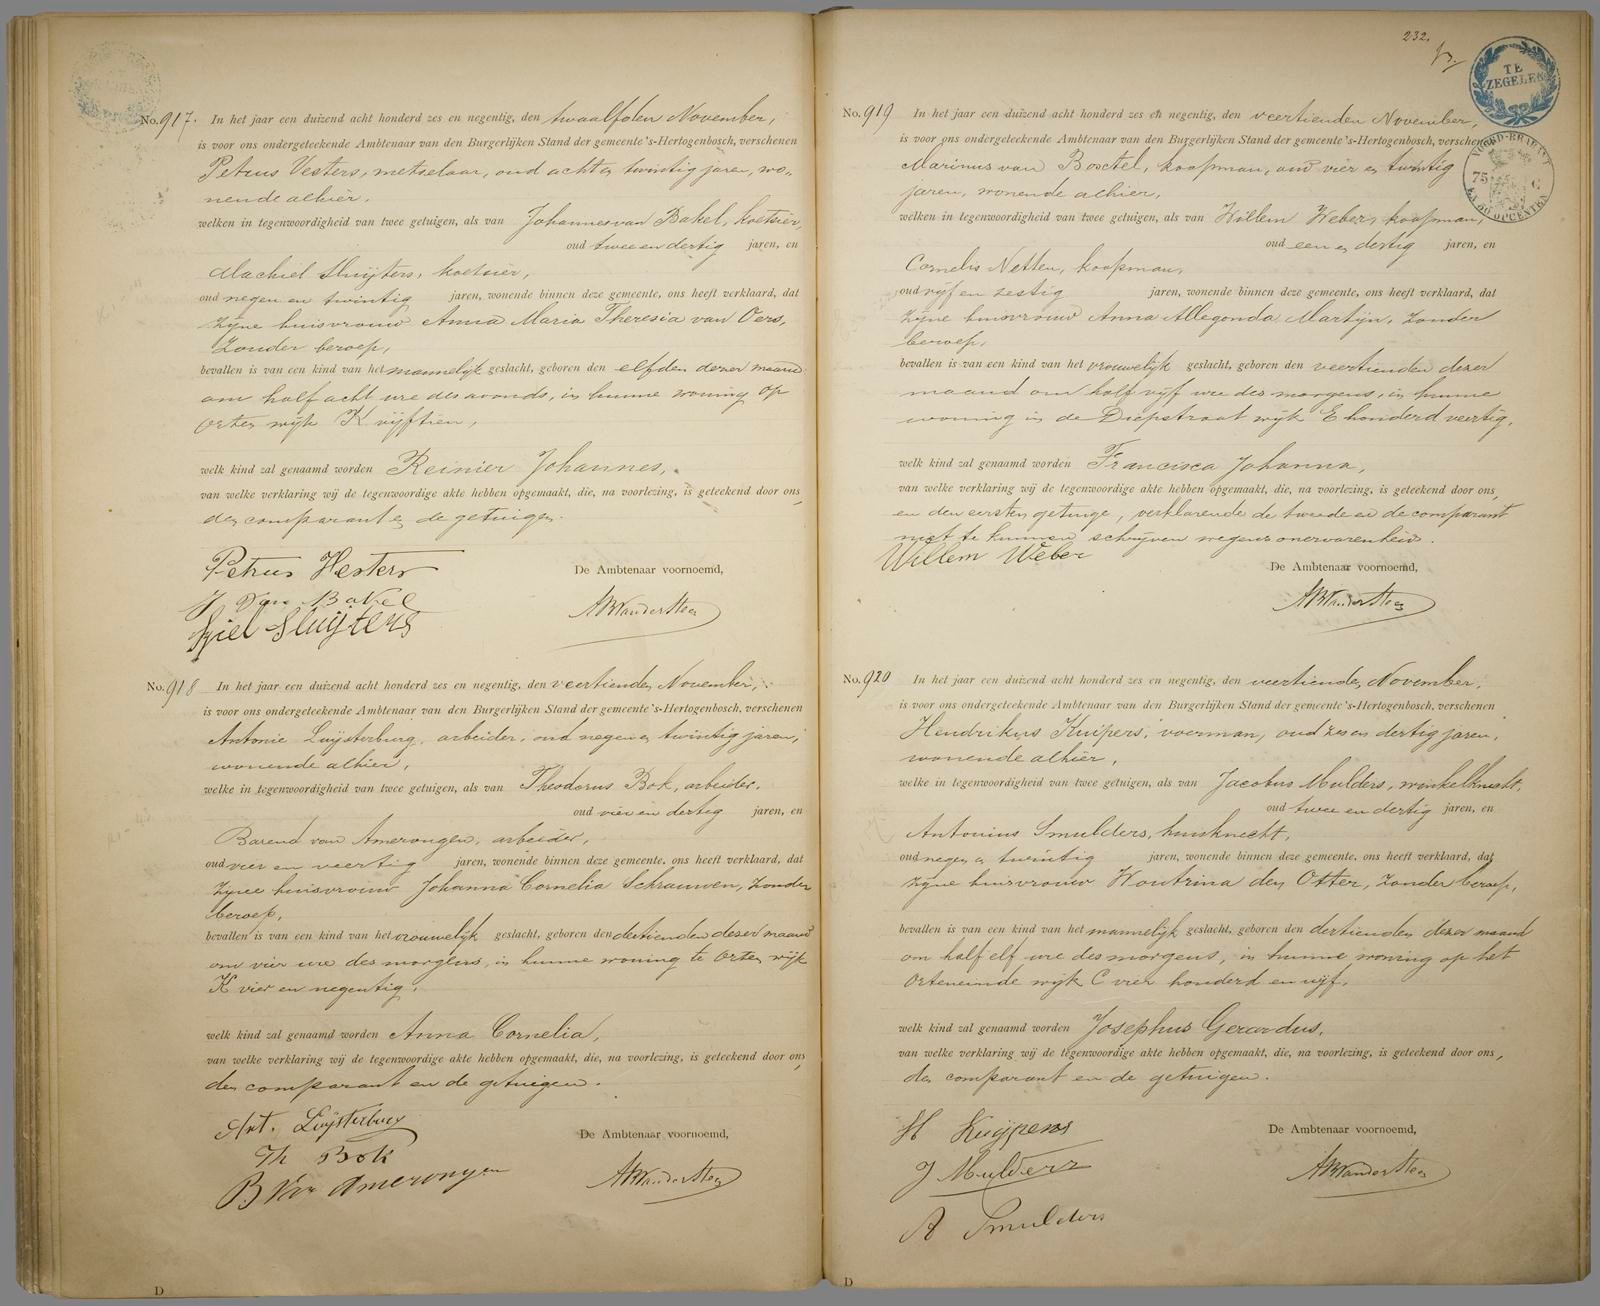 No. 917. In het jaar een duizend acht honderd zes en negentig, den twaalfden November,
is voor ons ondergeteekende Ambtenaar van den Burgerlijken Stand der gemeente 's-Hertogenbosch, verschenen
Petrus Vesters, metselaar, oud acht en twintig jaren, wo-
nende alhier,
welken in tegenwoordigheid van twee getuigen, als van Johannes van Bakel, koetsier,
oud twee en dertig jaren, en
Machiel Sluijters, koetsier,
oud negen en twintig jaren, wonende binnen deze gemeente, ons heeft verklaard, dat
zijne huisvrouw Anna Maria Theresia van Oers,
zonder beroep,
bevallen is van een kind van het mannelijk geslacht, geboren den elfden dezer maand
om half acht ure des avonds, in hunne woning op
Orten wijk K vijftien,
welk kind zal genaamd worden Reinier Johannes,
van welke verklaring wij de tegenwoordige akte hebben opgemaakt, die, na voorlezing, is geteekend door ons,
den comparant en de getuigen.
Petrus Vesters
De Ambtenaar voornoemd,
J van Bakel
AWvanderSteen
Giel Sluijters
No. 918 In het jaar een duizend acht honderd zes en negentig, den veertienden November,
is voor ons ondergeteekende Ambtenaar van den Burgerlijken Stand der gemeente 's-Hertogenbosch, verschenen
Antonie Luijsterburg, arbeider, oud negen en twintig jaren,
wonende alhier,
welke in tegenwoordigheid van twee getuigen, als van Theodorus Bok, arbeider,
oud vier en dertig jaren, en
Barend van Amerongen, arbeider,
oud vier en veertig jaren, wonende binnen deze gemeente, ons heeft verklaard, dat
zijne huisvrouw Johanna Cornelia Schrauwen, zonder
beroep,
bevallen is van een kind van het vrouwelijk geslacht, geboren den dertienden dezer maand
om vier ure des morgens, in hunne woning te Orten wijk
K vier en negentig,
welk kind zal genaamd worden Anna Cornelia,
van welke verklaring wij de tegenwoordige akte hebben opgemaakt, die, na voorlezing, is geteekend door ons,
den comparant en de getuigen.
Ant. Luijsterburg
De Ambtenaar voornoemd,
Th Bok
B Van Amerongen
AWvanderSteen
D
232.
TE
ZEGELEN
NOORD-BRABANT
75 C
EN 38 OPCENTEN
No. 919 In het jaar een duizend acht honderd zes en negentig, den veertienden November,
is voor ons ondergeteekende Ambtenaar van den Burgerlijken Stand der gemeente 's-Hertogenbosch, verschenen
Marinus van Boxtel, koopman, oud vier en twintig
jaren, wonende alhier,
welken in tegenwoordigheid van twee getuigen, als van Willem Weber, koopman,
oud een en dertig jaren, en
Cornelis Netten, koopman,
oud vijf en zestig jaren, wonende binnen deze gemeente, ons heeft verklaard, dat
zijne huisvrouw Anna Allegonda Martijn, zonder
beroep,
bevallen is van een kind van het vrouwelijk geslacht, geboren den veertienden dezer
maand om half vijf ure des morgens, in hunne
woning in de Diepstraat wijk E honderd veertig,
welk kind zal genaamd worden Francisca Johanna,
van welke verklaring wij de tegenwoordige akte hebben opgemaakt, die, na voorlezing, is geteekend door ons,
en den eersten getuige, verklarende de tweede en de comparant
niet te kunnen schrijven wegens onervarenheid.
Willem Weber
De Ambtenaar voornoemd,
AWvanderSteen
No. 920 In het jaar een duizend acht honderd zes en negentig, den veertienden November,
is voor ons ondergeteekende Ambtenaar van den Burgerlijken Stand der gemeente 's-Hertogenbosch, verschenen
Hendrikus Kuipers, voerman, oud zes en dertig jaren,
wonende alhier,
welke in tegenwoordigheid van twee getuigen, als van Jacobus Mulders, winkelknecht,
oud twee en dertig jaren, en
Antonius Smulders, huisknecht,
oud negen en twintig jaren, wonende binnen deze gemeente, ons heeft verklaard, dat
zijne huisvrouw Woutrina den Otter, zonder beroep,
bevallen is van een kind van het mannelijk geslacht, geboren den dertienden dezer maand
om half elf ure des morgens, in hunne woning op het
Orteneinde wijk C vier honderd en vijf,
welk kind zal genaamd worden Josephus Gerardus,
van welke verklaring wij de tegenwoordige akte hebben opgemaakt, die, na voorlezing, is geteekend door ons,
den comparant en de getuigen.
H Kuijpers
De Ambtenaar voornoemd,
J Mulders
AWvanderSteen
A Smulders
D